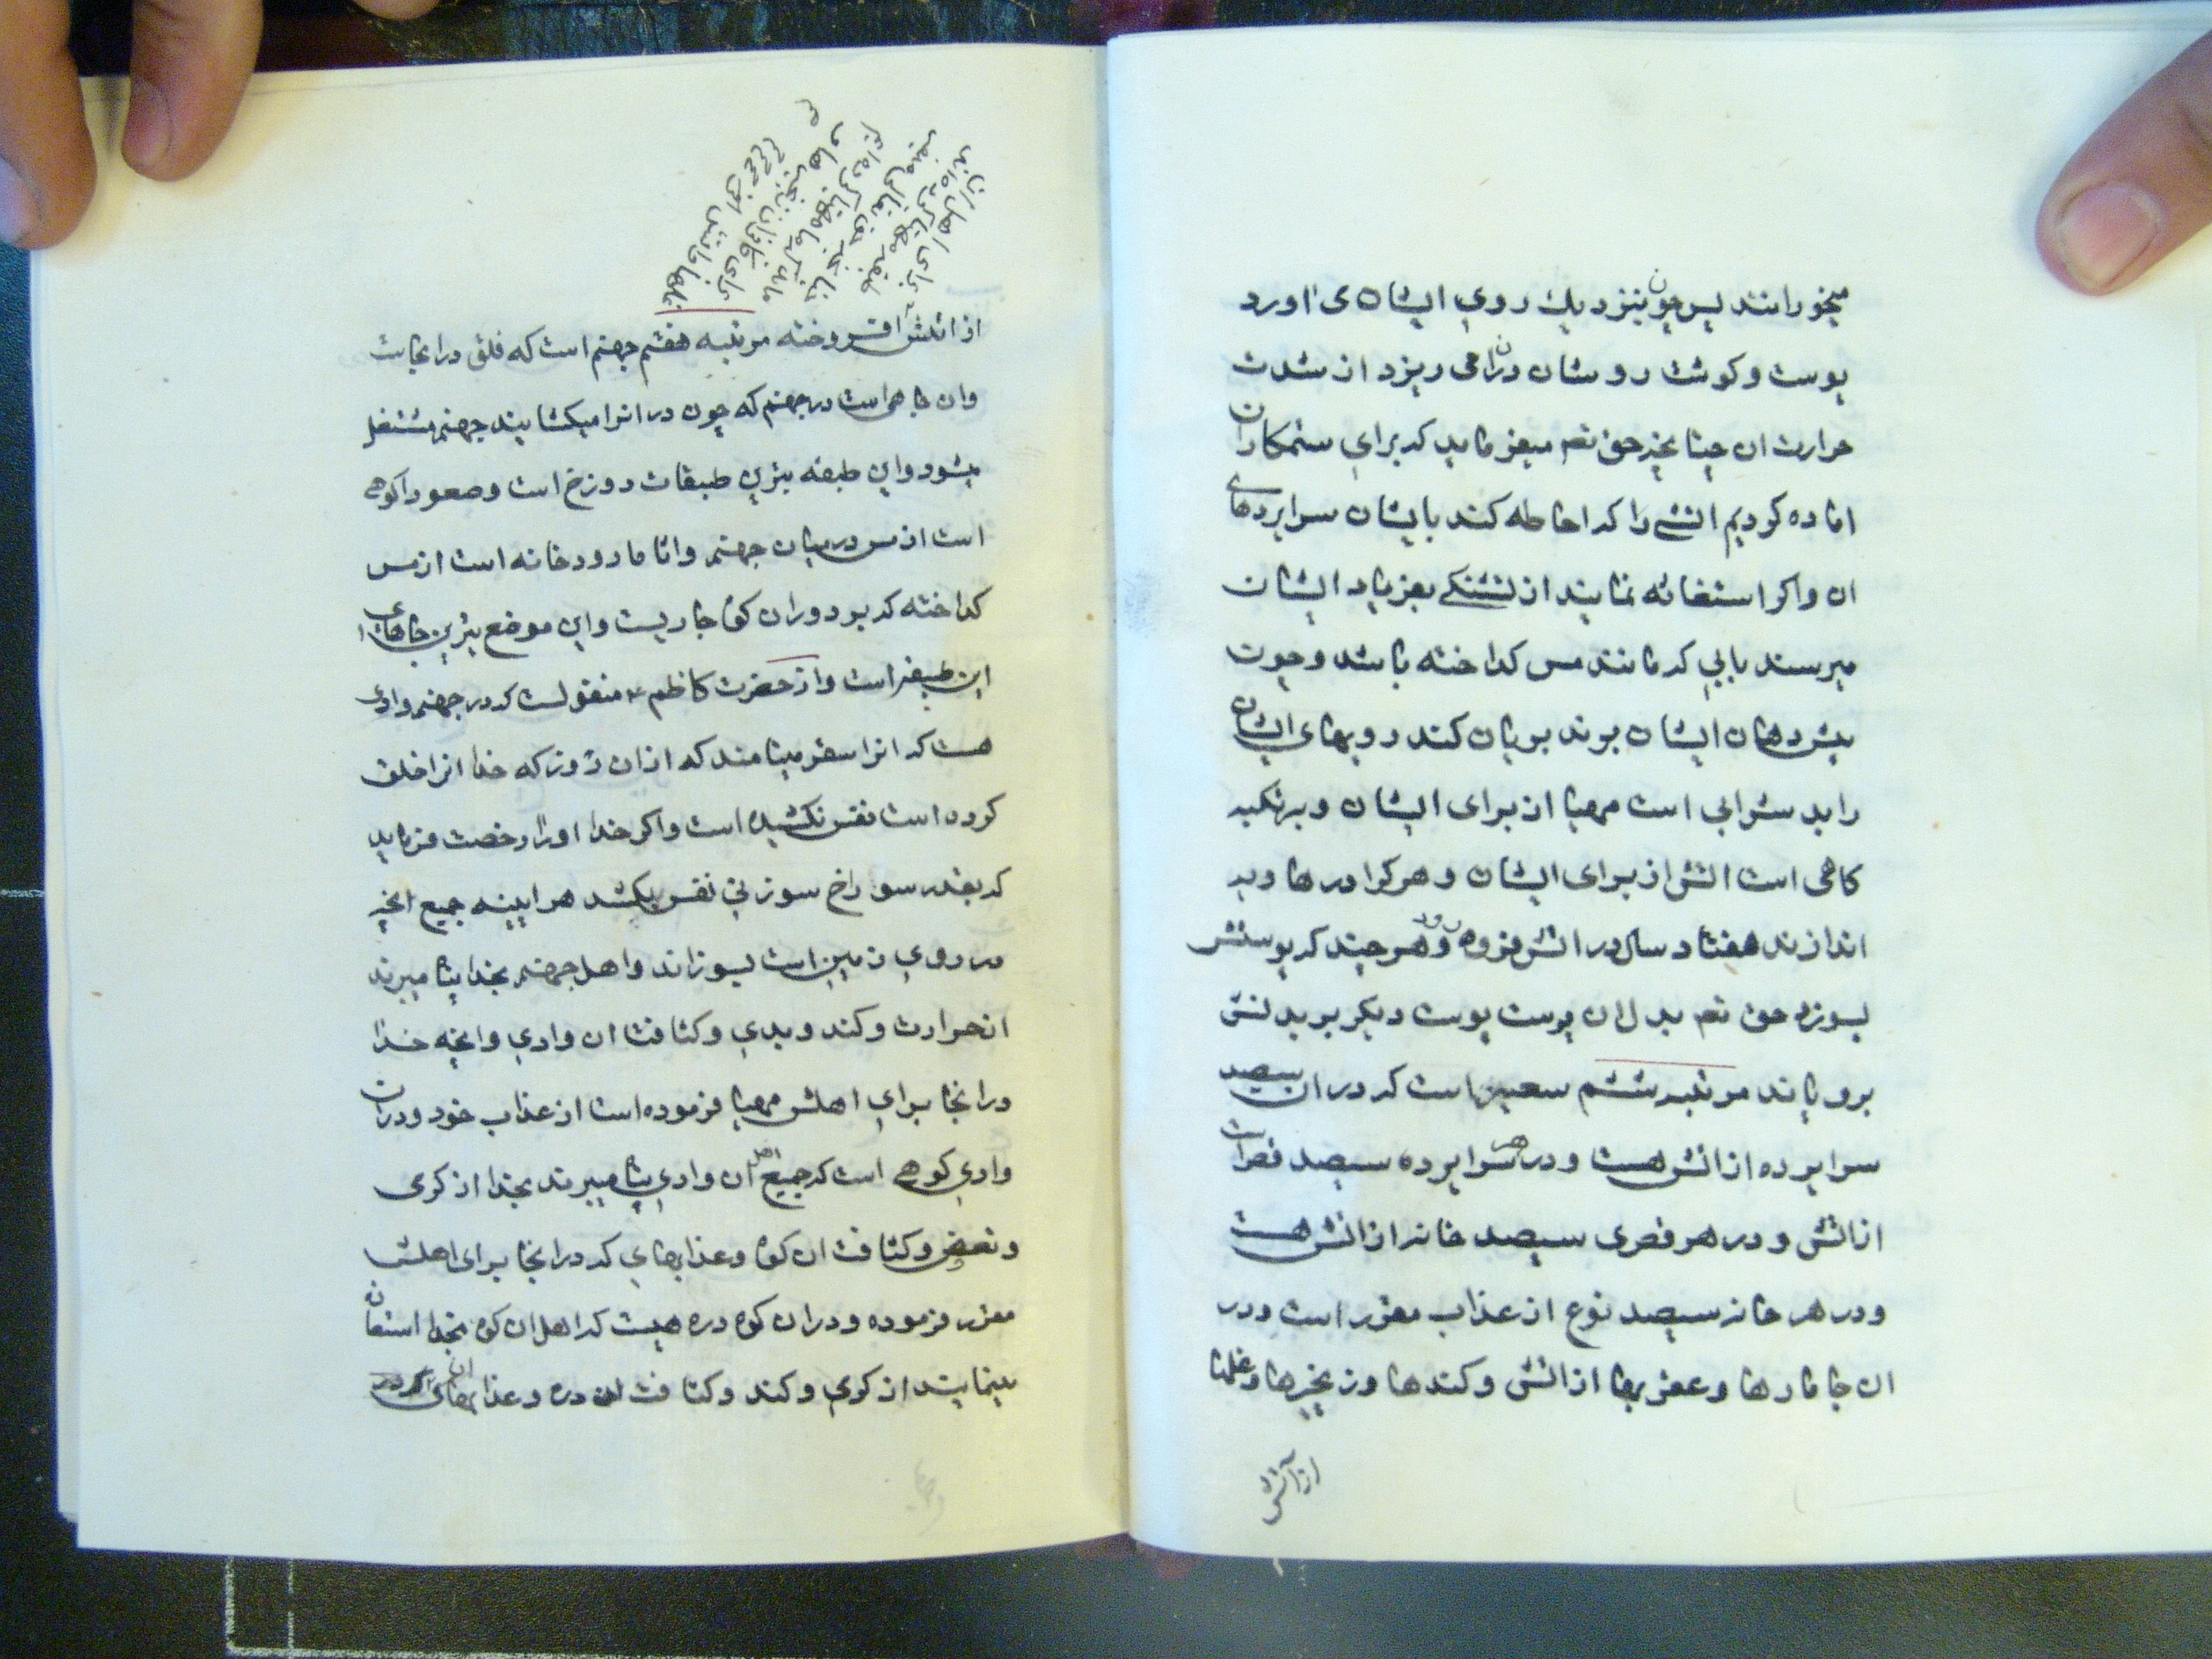 میخورانند پس چون بنزدیك روی ایشان می اورد
پوست و کوشت روشان دران می ریزد از شدت
حرارت ان چنانچه حق تعم میفرماید که برای ستمکاران
اماده کردیم اتشی را که احاطه کند بایشان سرابردهای
ان واکر استغاثه نمایند از تشنکی بفریاد ایشان
میرسند بابی که مانند مس کداخته باشد و چون
پیش دهان ایشان برند بریان کند رویهای ایشان
را بد شرابی است مهیا از برای ایشان و بد تکیه
کاهی است اتش از برای ایشان و هر کرا در هاویه
اندازند هفتاد سال در اتش فرو رود و هر چند که پوستش
بسوزد حق تعم بدل ان پوست پوست دیکر بر بدنش
برویاند مرتبه ششم سعیر است که در ان سیصد
سرابرده از اتش هست و در هر سرابرده سیصد قصر است
از اتش و در هر قصری سیصد خانه از اتش هست
و در هر خانه سیصد نوع از عذاب مقرر است و در
ان جا مارها و عقربها از اتش و کندها و زنجیرها و غلها
از آتش
غلها و اتش
برای کافران زنجیرهای
از اتش افروخته مرتبه هفتم جهنم است که فلق در انجاست
وان چاهی است در جهنم که چون در انرا میکشایند جهنم مشتعل
میشود و این طبقه بترین طبقات دوزخ است و صعود کوهی
است از مس در میان جهنم و اثاما رودخانه است از مس
کداخته که بر دور ان کوه جاریست و این موضع بترین جاهای
این طبقه است و از حضرت کاظم ع منقولست که در جهنم وادی
هست که انرا سقر مینامند که از ان روز که خدا انرا خلق
کرده است نفس نکشیده است و اکر خدا او را رخصت فرماید
که بقدر سوراخ سوزنی نفس بکشد هر اینه جمیع انچه
در روی زمین است بسوزاند و اهل جهنم بخدا پناه میبرند
از حرارت و کند و بدی و کثافت ان وادی و انچه خدا
در انجا برای اهلش مهیا فرموده است از عذاب خود و در ان
وادی کوهی است که جمیع اهل ان وادی پناه میبرند بخدا از کرمی
و تعفن و کثافت ان کوه و عذابهای که در انجا برای اهلش
مقرر فرموده و در ان کوه دره هست که اهل ان کوه بخدا استعانه
مینمایند از کرمی و کند و کثافت ان دره و عذابهای ان